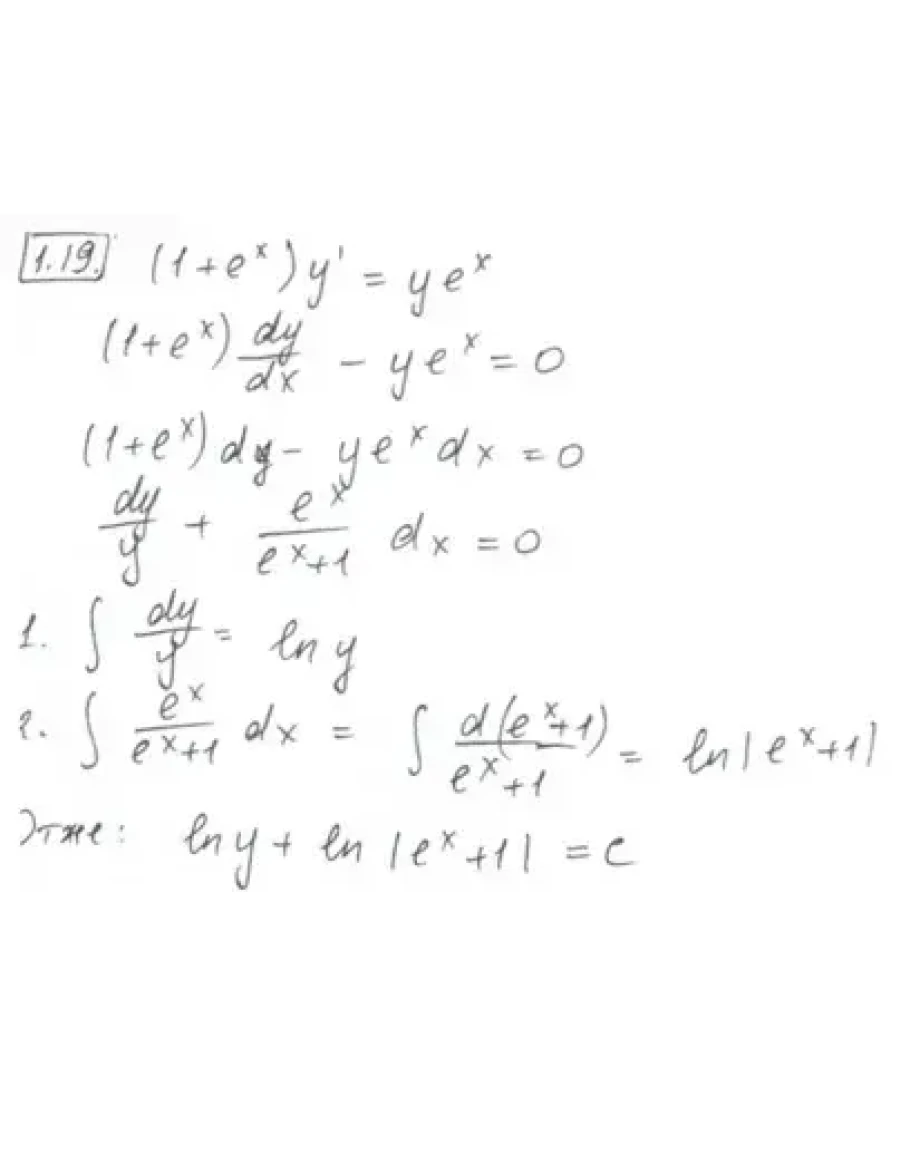 1.19. (1+e^x)y' = ye^x
(1+e^x) dy/dx - ye^x = 0
(1+e^x)dy - ye^x dx = 0
dy/y + e^x/(e^x+1) dx = 0
1. ∫ dy/y = ln y
2. ∫ e^x/(e^x+1) dx = ∫ d(e^x+1)/(e^x+1) = ln|e^x+1|
Отже: ln y + ln |e^x+1| = c